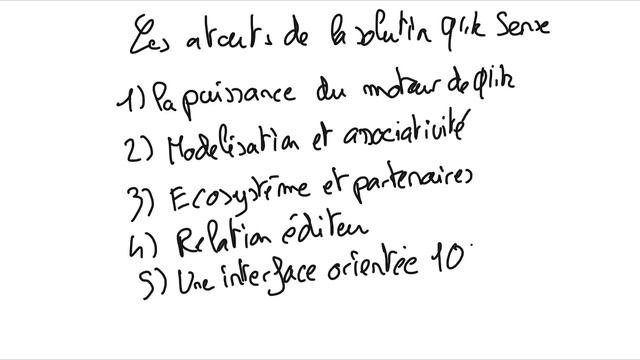 Les atouts de la solution Qlik Sense
1) la puissance du moteur de Qlik
2) Modélisation et associativité
3) Ecosystème et partenaires
4) Relation éditeu
5) Une interface orientée 10